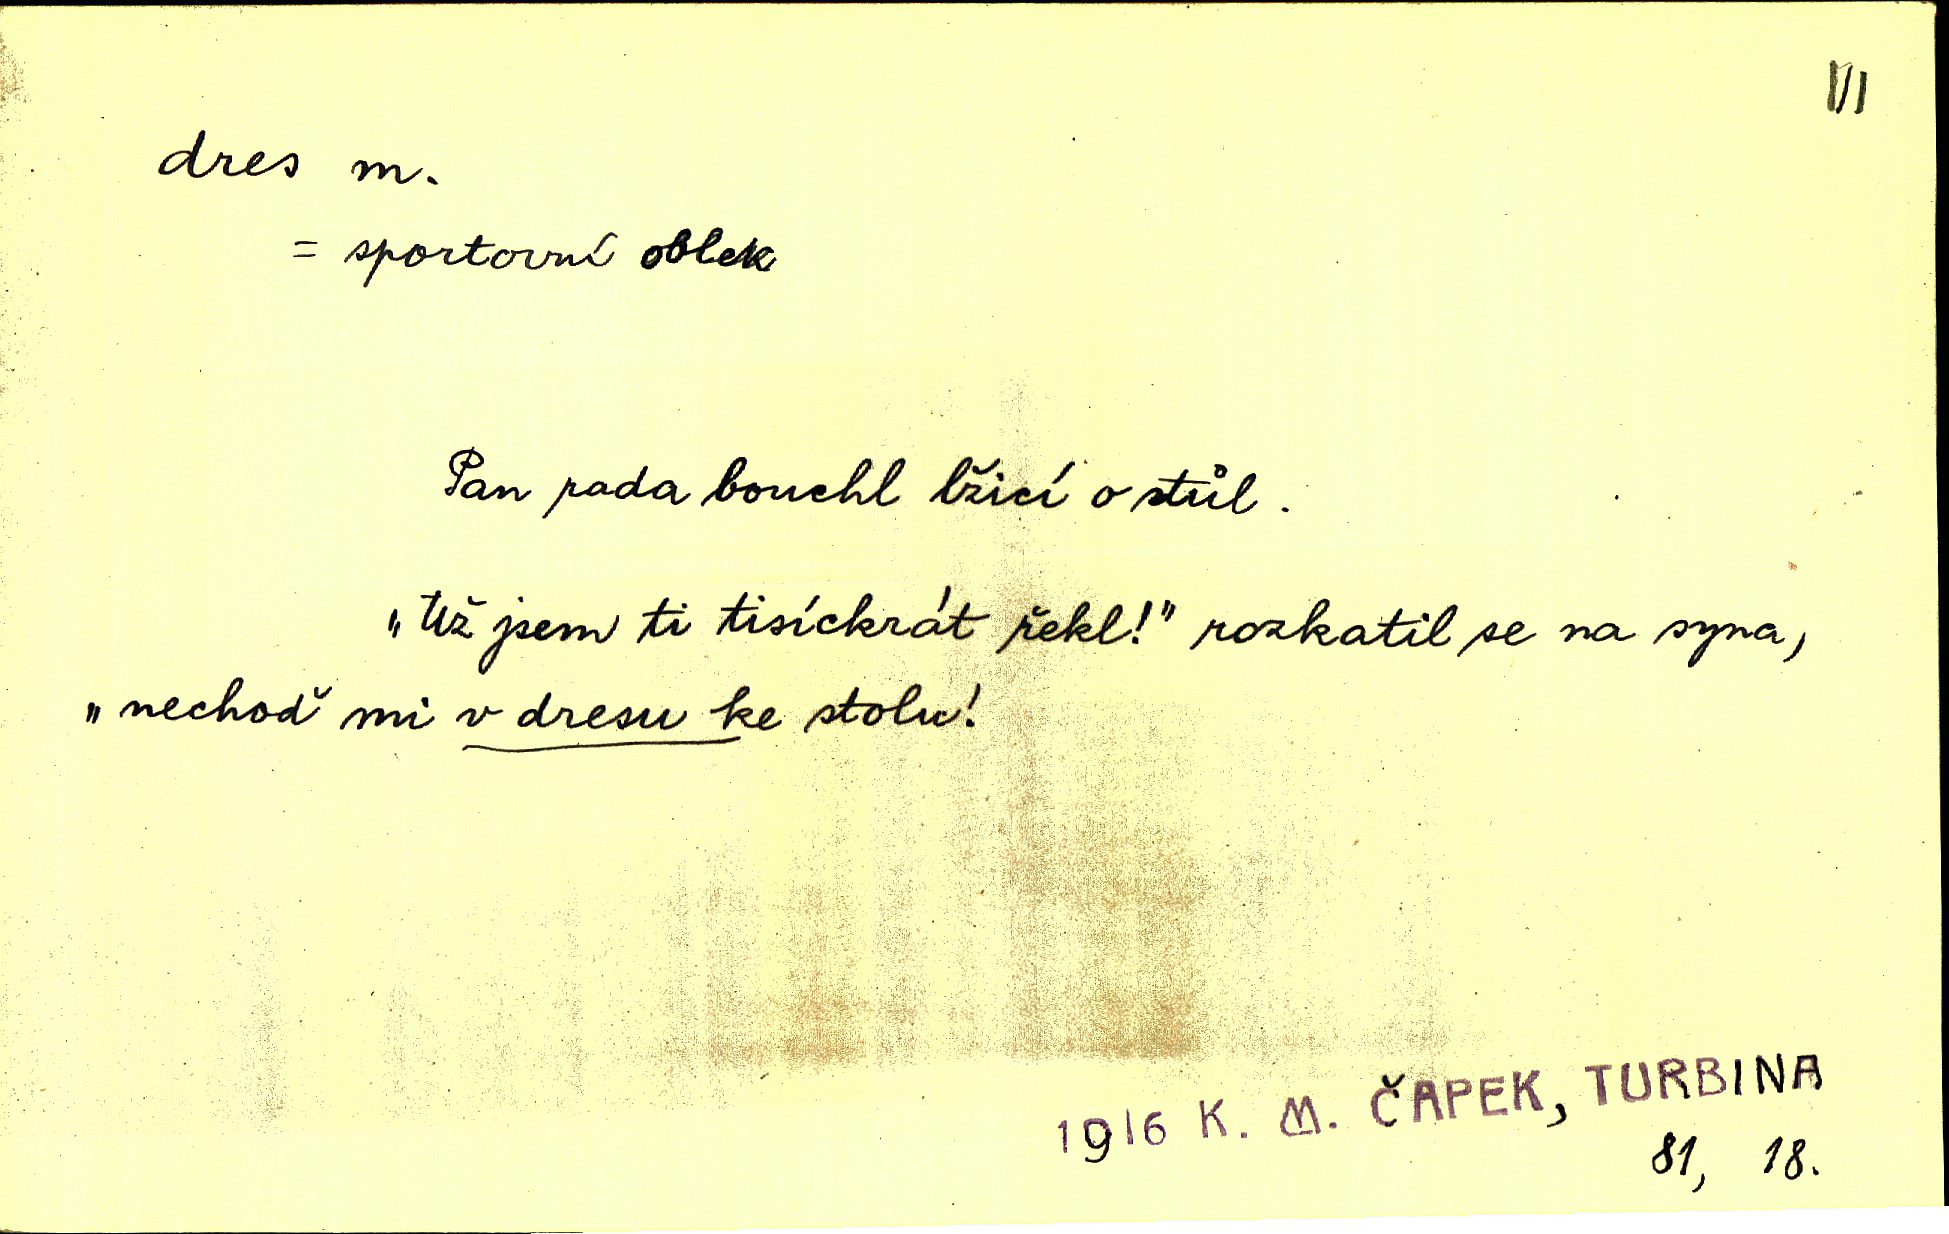 VI
dres m.
= sportovní oblek
Pan rada bouchl lžicí o stůl.
„Už jsem ti tisíckrát řekl!" rozkatil se na syna,
„nechoď mi v dresu ke stolu!
1916 K. M. ČAPEK, TURBINA
81, 18.